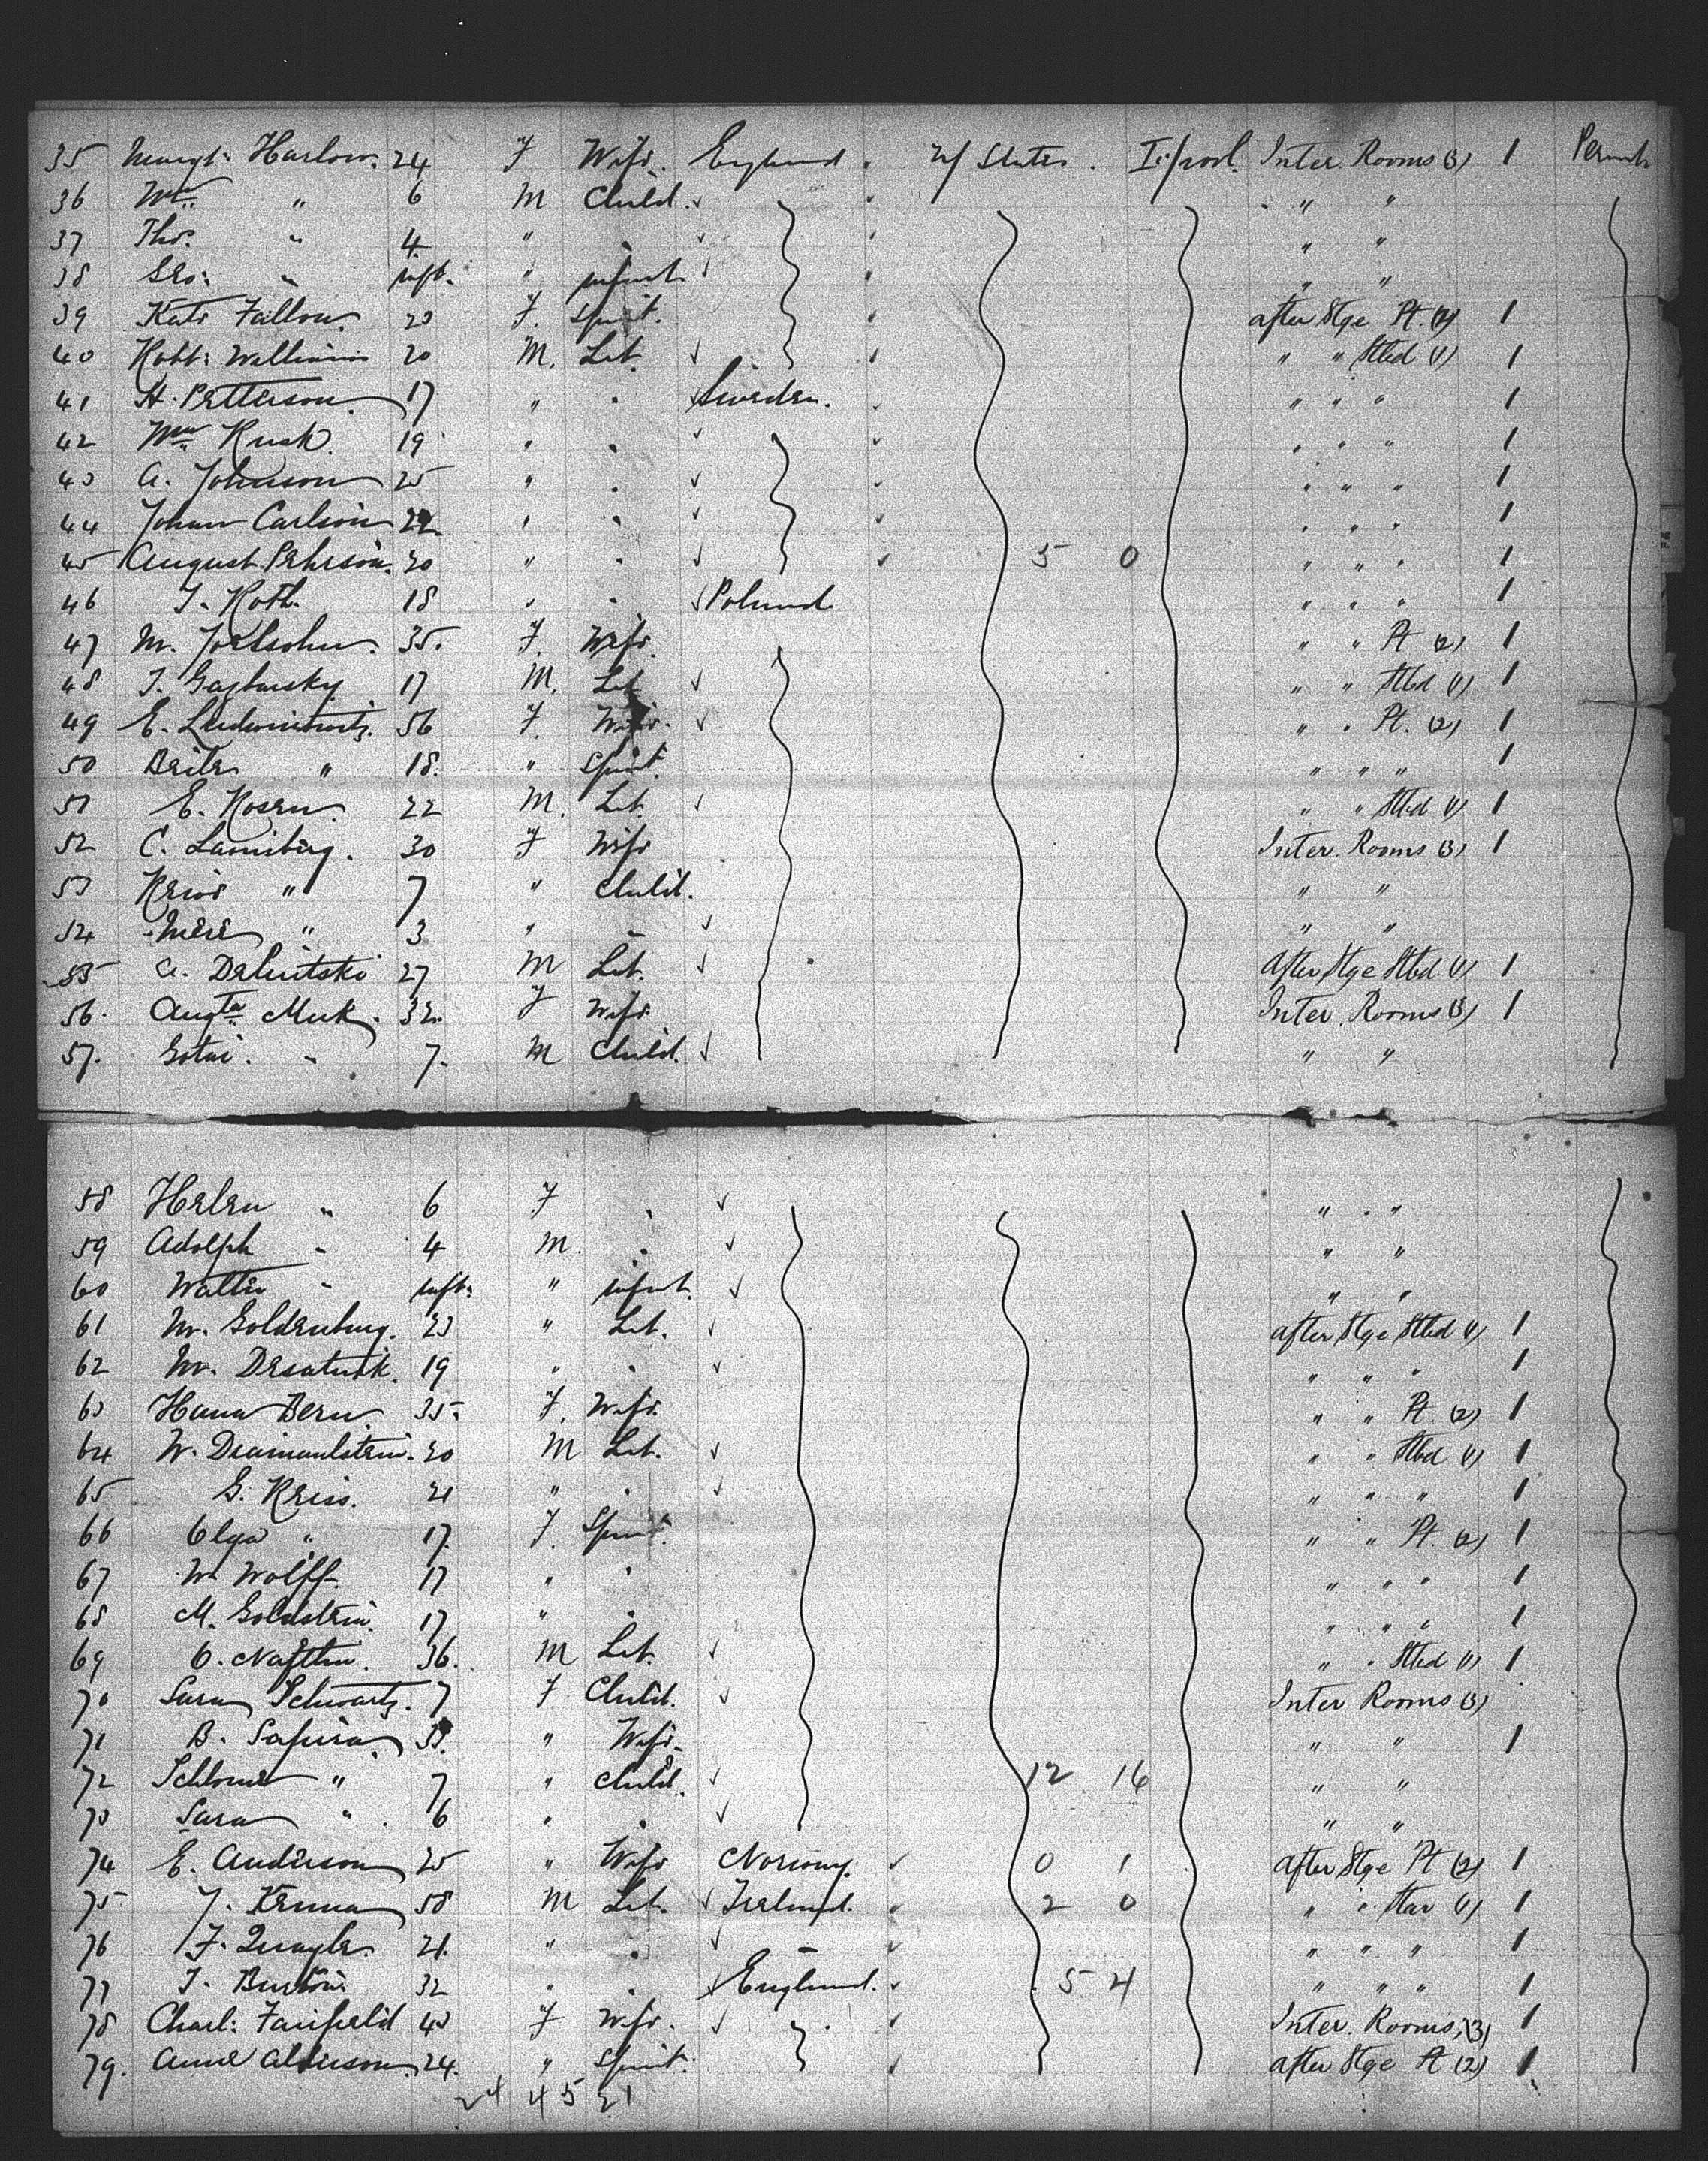 35 Margt. Harlow. 24 F Wife. England. U/ States. L'pool. Inter. Rooms (3) 1 Permt
36 Wm. " 6 M Child. " "
37 Thos. " 4 " " " "
38 Geo: " inft. " infant " "
39 Kate Fallon. 20 F. Spinst. after Stge Pt. (2) 1
40 Robt: Williams 20 M. Lab. " " Stbd (1) 1
41 H. Petterson. 17 " " Sweden. " " " 1
42 Wm Rusk. 19 " " " " " 1
43 A. Johnson 25 " " " " " 1
44 Johan Carlson 22 " " " " " 1
45 August Pehrson. 20 " " 5 0 " " " 1
46 J. Roth. 18 " " Poland " " " 1
47 M. Joelsohn. 35. F. Wife. " " Pt (2) 1
48 17 M. Lab " " Stbd (1) 1
49 E. 56 F. Wife. " " Pt. (2) 1
50 Beile " 18. " Spinst. " " " 1
51 E. Rosen. 22 M. Lab. " " Stbd (1) 1
52 C. 30 F Wife Inter. Rooms (3) 1
53 " 7 " Child. " "
54 " 3 " " " "
55 A. 27 M Lab. After Stge Stbd (1) 1
56. Augta Muk. 32. F Wife Inter. Rooms (3) 1
57. " 7. M Child. " "
58 Helen " 6 F " " "
59 Adolph " 4 M. " " "
60 Walter " inft. " infant. " "
61 M. Goldenburg. 23 " Lab. after Stge Stbd (1) 1
62 M. 19 " " " " " 1
63 Hana Bern. 35. F. Wife. " " Pt. (2) 1
64 W. Diamandstein. 20 M Lab. " " Stbd (1) 1
65 G. Kriss. 21 " " " " " 1
66 Olga " 17. F. Spinst. " " Pt. (2) 1
67 W. Wolff. 17 " " " " " 1
68 M. Goldstein. 17 " " " " " 1
69 O. Naftlin. 36. M Lab. " " Stbd (1) 1
70 Sara Schwartz. 7 F Child. Inter Rooms (3)
71 B. Safira " Wife. " " 1
72 Schlome " 7 " Child. 12 16 " "
73 Sara " 6 " " " "
74 E. Anderson 25 " Wife Norway. 0 1 after Stge Pt (2) 1
75 J. Kenna 58 M Lab. Ireland. 2 0 " " Star (1) 1
76 F. Quayle. 21. " " " " " 1
77 J. Burton. 32 " " England. 5 4 " " " 1
78 Charl: Fairfield 40 F Wife. Inter. Rooms, (3) 1
79. Anne Alderson. 24. " Spinst. after Stge Pt (2) 1
24 45 21